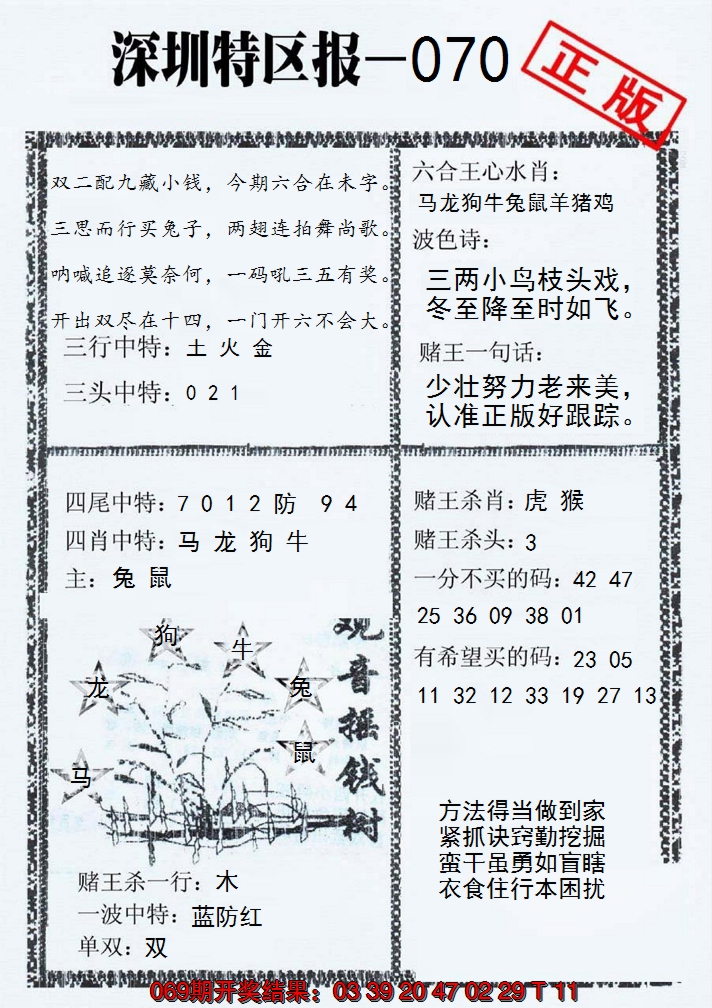 深圳特区报—070
正版
双二配九藏小钱，今期六合在未字。
三思而行买兔子，两翅连拍舞尚歌。
呐喊追逐莫奈何，一码吼三五有奖。
开出双尽在十四，一门开六不会大。
三行中特：土 火 金
三头中特：0 2 1
六合王心水肖：
马龙狗牛兔鼠羊猪鸡
波色诗：
三两小鸟枝头戏，
冬至降至时如飞。
赌王一句话：
少壮努力老来美，
认准正版好跟踪。
四尾中特：7 0 1 2 防 9 4
四肖中特：马 龙 狗 牛
主：兔 鼠
赌王杀肖：虎 猴
赌王杀头：3
一分不买的码：42 47
25 36 09 38 01
有希望买的码：23 05
11 32 12 33 19 27 13
狗
牛
龙
兔
鼠
马
观音摇钱树
方法得当做到家
紧抓诀窍勤挖掘
蛮干虽勇如盲瞎
衣食住行本困扰
赌王杀一行：木
一波中特：蓝防红
单双：双
069期开奖结果：03 39 20 47 02 29 T 11